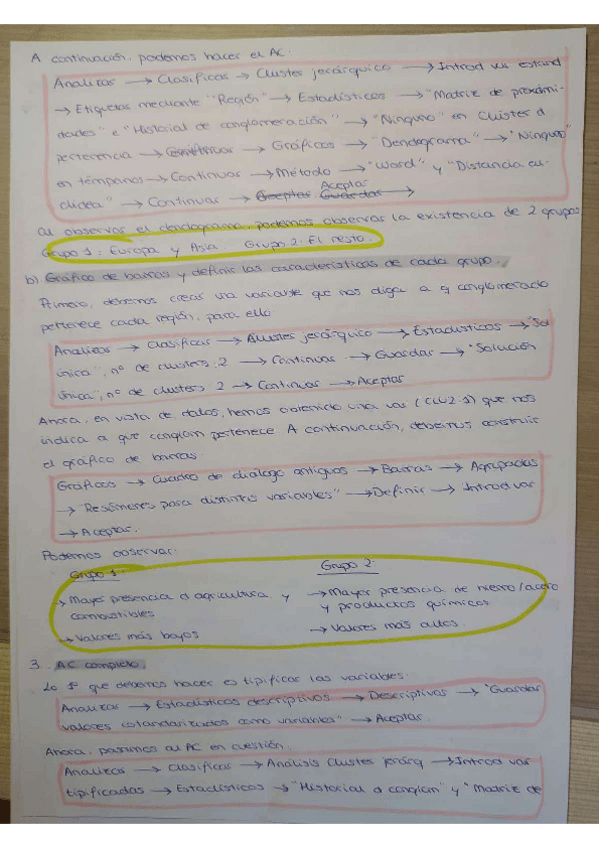 A continuación, podemos hacer el AC:
Analizar → Clasificar → Cluster jerárquico → Introd vas estand
→ Etiquetar mediante "Región" → Estadísticos → "Matriz de proximi-
dades" e "Historial de conglomeración" → "Ninguno" en Cluster d
pertenencia → Continuar → Gráficos → "Dendograma" → "Ninguno"
en témpanos → Continuar → Método → "Ward" y "Distancia eu-
clídea" → Continuar → Aceptar
al observar el dendograma, podemos observar la existencia de 2 grupos
Grupo 1: Europa y Asia. Grupo 2: El resto.
b) Gráfico de barras y definir las características de cada grupo.
Primero, debemos crear una variable que nos diga a q conglomerado
pertenece cada región, para ello:
Analizar → Clasificar → Clusters jerárquico → Estadísticos → "Sol
única", nº de clusters: 2 → Continuar → Guardar → "Solución
única", nº de clusters 2 → Continuar → Aceptar
Ahora, en vista de datos, hemos obtenido una var (CLU2-1) que nos
indica a que conglom pertenece. A continuación, debemos construir
el gráfico de barras:
Gráficos → Cuadro de diálogo antiguos → Barras → Agrupadas
→ "Resúmenes para distintas variables" → Definir → Introd var
→ Aceptar.
Podemos observar:
Grupo 1: Grupo 2:
→ Mayor presencia d agricultura y → Mayor presencia de hierro/acero
combustibles y productos químicos
→ Valores más bajos → Valores más altos.
3. AC completo.
Lo 1º que debemos hacer es tipificar las variables:
Analizar → Estadísticos descriptivos → Descriptivos → "Guardar
valores estandarizados como variables" → Aceptar.
Ahora, pasamos al AC en cuestión:
Analizar → Clasificar → Análisis Cluster jerárq → Introd var
tipificadas → Estadísticos → "Historial d conglom" y "Matriz de